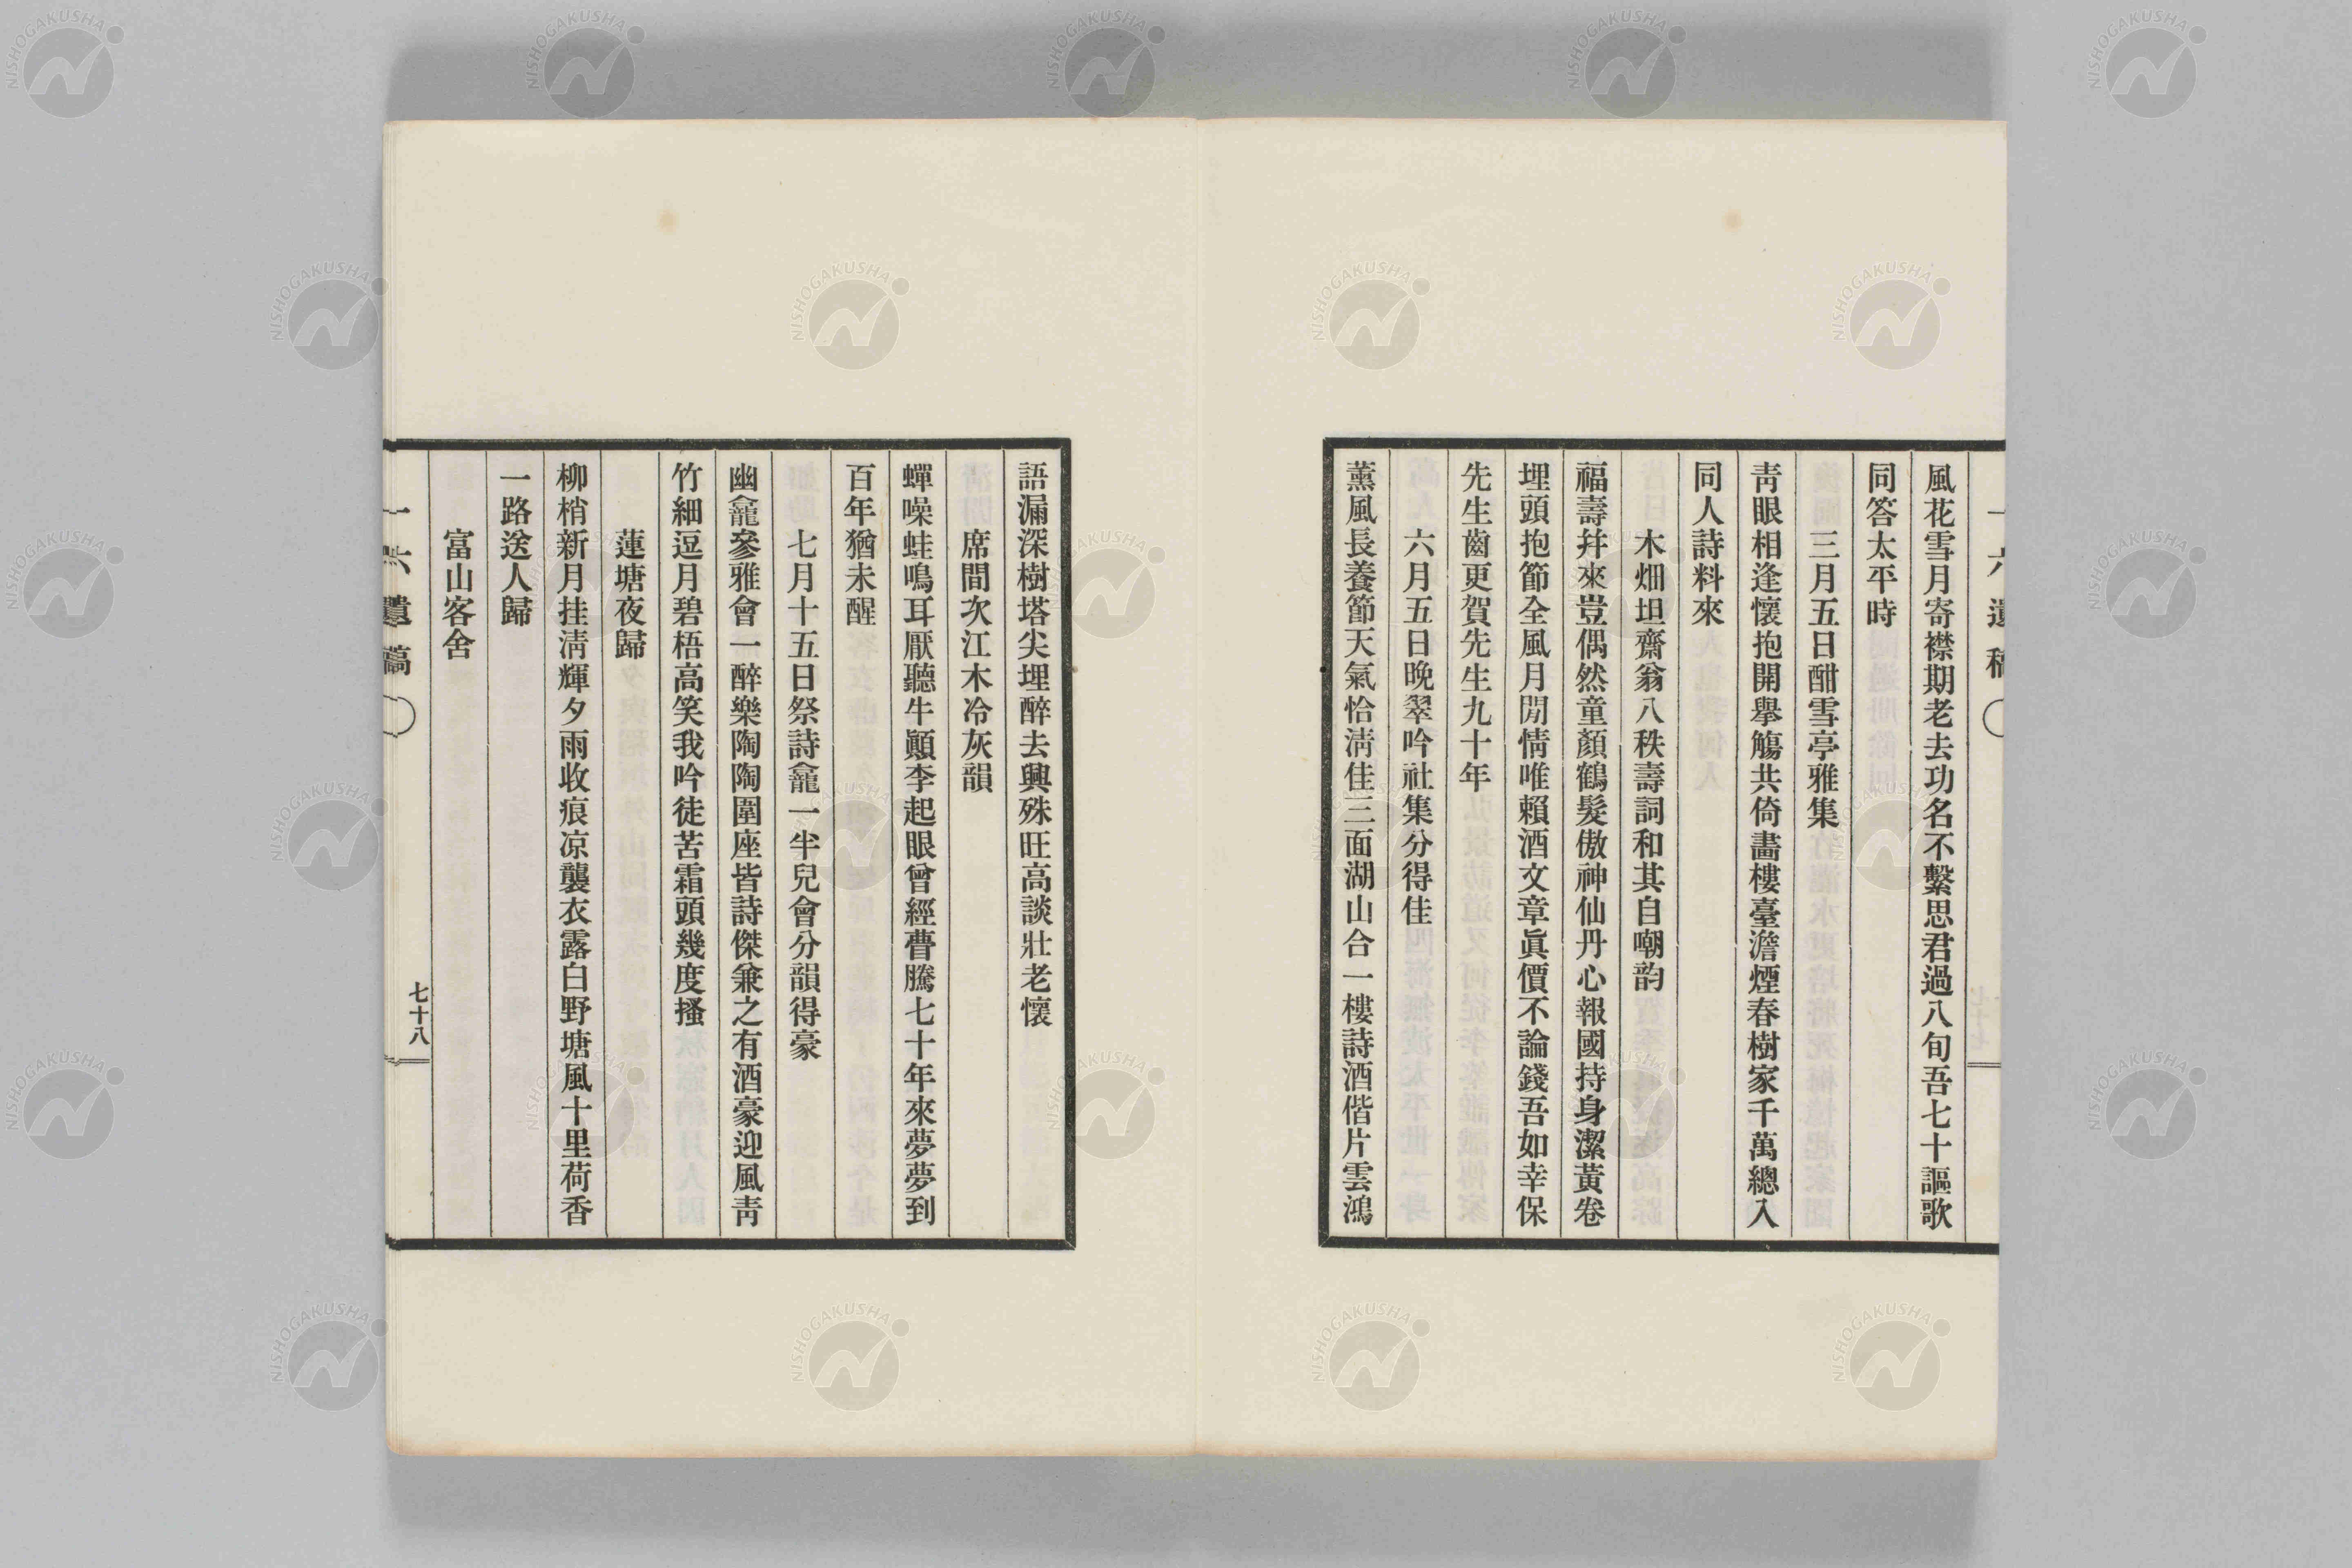 一六遺稿
風花雪月寄襟期老去功名不繫思君過八旬吾七十謳歌
同答太平時
三月五日酣雪亭雅集
靑眼相逢懷抱開擧觴共倚畵樓臺澹煙春樹家千萬總入
同人詩料來
木畑坦齋翁八秩壽詞和其自嘲韵
福壽幷來豈偶然童顏鶴髮傲神仙丹心報國持身潔黃卷
埋頭抱節全風月閒情唯賴酒文章眞價不論錢吾如幸保
先生齒更賀先生九十年
六月五日晚翠吟社集分得佳
薰風長養節天氣恰淸佳三面湖山合一樓詩酒偕片雲鴻
語漏深樹塔尖埋醉去興殊旺高談壯老懷
席間次江木冷灰韻
蟬噪蛙鳴耳厭聽牛顚李起眼曾經瞢騰七十年來夢夢到
百年猶未醒
七月十五日祭詩龕一半兒會分韻得豪
幽龕參雅會一醉樂陶陶圍座皆詩傑兼之有酒豪迎風靑
竹細逗月碧梧高笑我吟徒苦霜頭幾度搔
蓮塘夜歸
柳梢新月挂淸輝夕雨收痕凉襲衣露白野塘風十里荷香
一路送人歸
富山客舍
一六遺稿
七十八
NISHOGAKUSHA